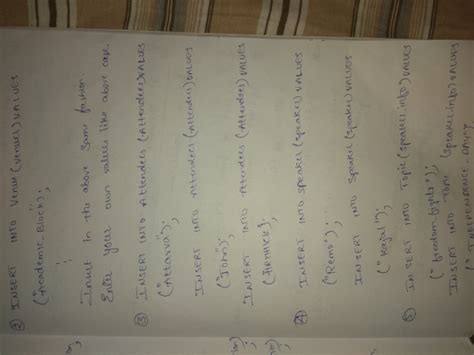 ② INSERT INTO Venue (venues) VALUES
("Academic_Block");
Insert in the above same fashion
Enter your own values like above case.
③ INSERT INTO Attendees (Attendees) VALUES
INSERT INTO Attendees (Attendees) VALUES
("John");
INSERT INTO Attendees (Attendees) VALUES
④ INSERT INTO Speaker (speaker) VALUES
("Remo");
INSERT INTO Speaker (speaker) VALUES
("Kajal");
⑤ INSERT INTO Topic (speaker_info) VALUES
("freedom fights");
INSERT INTO Topic (speaker_info) VALUES